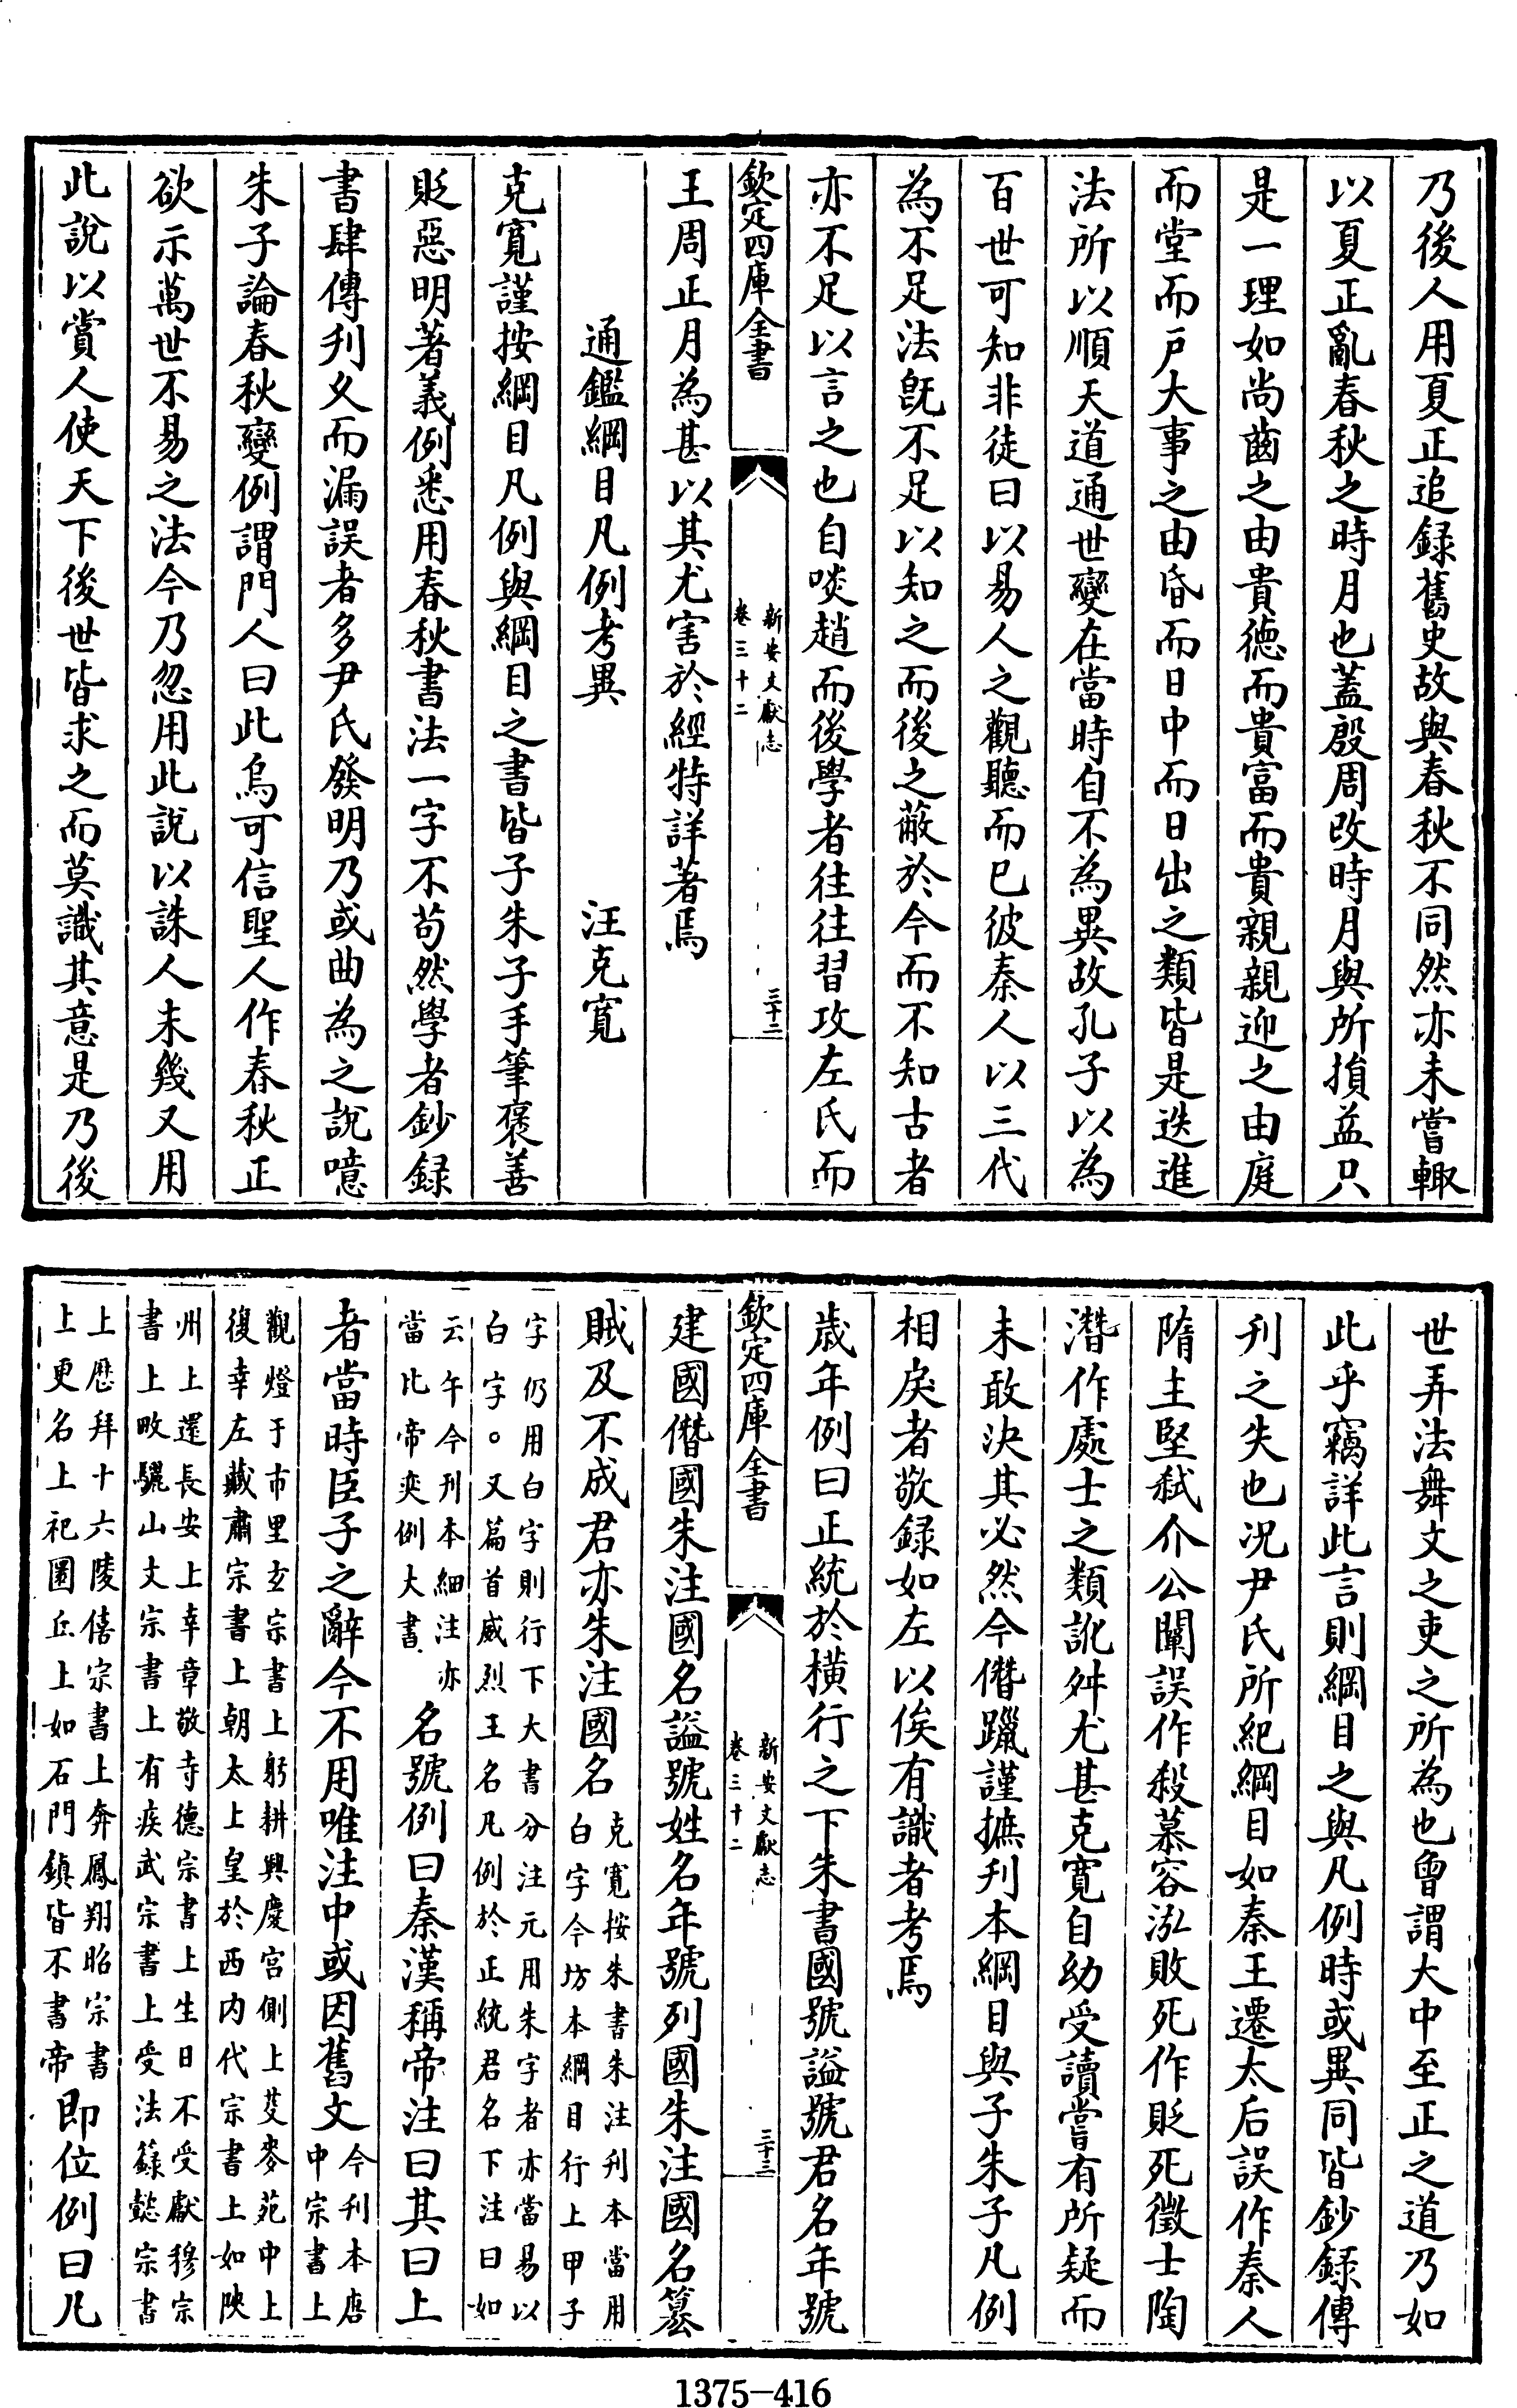 乃後人用夏正追録舊史故與春秋不同然亦未嘗輙
以夏正亂春秋之時月也蓋殷周改時月與所損益只
是一理如尚齒之由貴德而貴富而貴親親迎之由庭
而堂而戶大事之由昏而日中而日出之類皆是迭進
法所以順天道通世變在當時自不為異故孔子以為
百世可知非徒曰以易人之觀聽而已彼秦人以三代
為不足法既不足以知之而後之蔽於今而不知古者
亦不足以言之也自啖趙而後學者往往習攻左氏而
欽定四庫全書
新安文獻志
卷三十二
三十二
王周正月為甚以其尤害於經特詳著焉
通鑑綱目凡例考異 汪克寛
克寛謹按綱目凡例與綱目之書皆子朱子手筆褒善
貶惡明著義例悉用春秋書法一字不苟然學者鈔録
書肆傳刋乆而漏誤者多尹氏發明乃或曲為之說噫
朱子論春秋變例謂門人曰此烏可信聖人作春秋正
欲示萬世不易之法今乃忽用此說以誅人未幾又用
此說以賞人使天下後世皆求之而莫識其意是乃後
世弄法舞文之吏之所為也曾謂大中至正之道乃如
此乎竊詳此言則綱目之與凡例時或異同皆鈔録傳
刋之失也况尹氏所紀綱目如秦王遷太后誤作秦人
隋主堅弑介公闡誤作殺慕容泓敗死作貶死徵士陶
潛作處士之類訛舛尤甚克寛自幼受讀嘗有所疑而
未敢決其必然今僭躐謹摭刋本綱目與子朱子凡例
相戾者敬録如左以俟有識者考焉
歲年例曰正統於横行之下朱書國號謚號君名年號
欽定四庫全書
新安文獻志
卷三十二
三十三
建國僭國朱注國名謚號姓名年號列國朱注國名簒
賊及不成君亦朱注國名
克寛按朱書朱注刋本當用
白字今坊本綱目行上甲子
字仍用白字則行下大書分注元用朱字者亦當易以
白字。又篇首威烈王名凡例於正統君名下注曰如
云午今刋本細注亦
當比帝奕例大書
名號例曰秦漢稱帝注曰其曰上
者當時臣子之辭今不用唯注中或因舊文
今刋本唐
中宗書上
觀燈于市里玄宗書上躬耕興慶宫側上芟麥苑中上
復幸左藏肅宗書上朝太上皇於西内代宗書上如陜
州上還長安上幸章敬寺德宗書上生日不受獻穆宗
書上畋驪山文宗書上有疾武宗書上受法籙懿宗書
上歴拜十六陵僖宗書上奔鳳翔昭宗書
上更名上祀圜丘上如石門鎮皆不書帝
即位例曰凡
1375-416